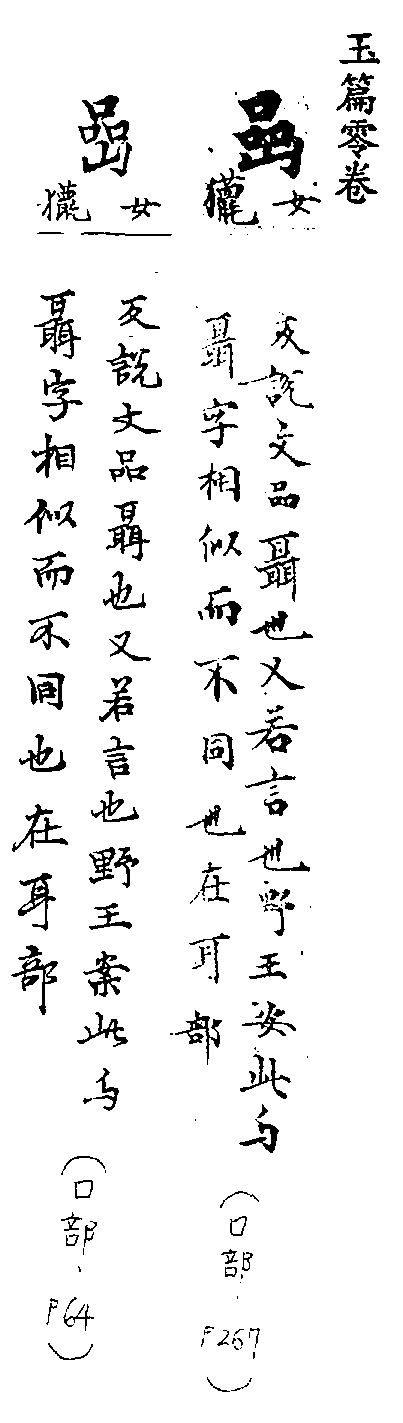 玉篇零卷
喦
女
獵
反說文品聶也又若言也野王案此与
聶字相似而不同也在耳部
(口部.P267)
喦
女
獵
反說文品聶也又若言也野王案此与
聶字相似而不同也在耳部
(口部.P64)